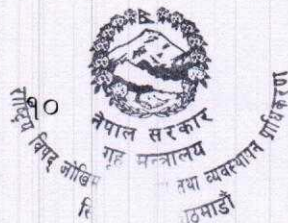 १०
नेपाल सरकार
गृह मन्त्रालय
राष्ट्रिय विपद् जोखिम तथा व्यवस्थापन प्राधिकरण